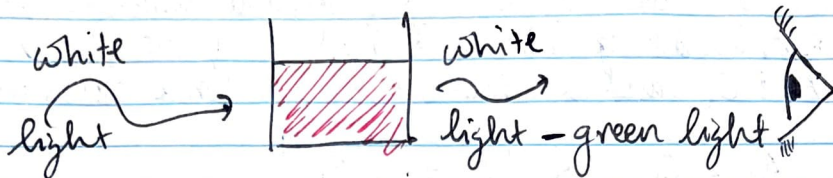 white
light
white
light - green light